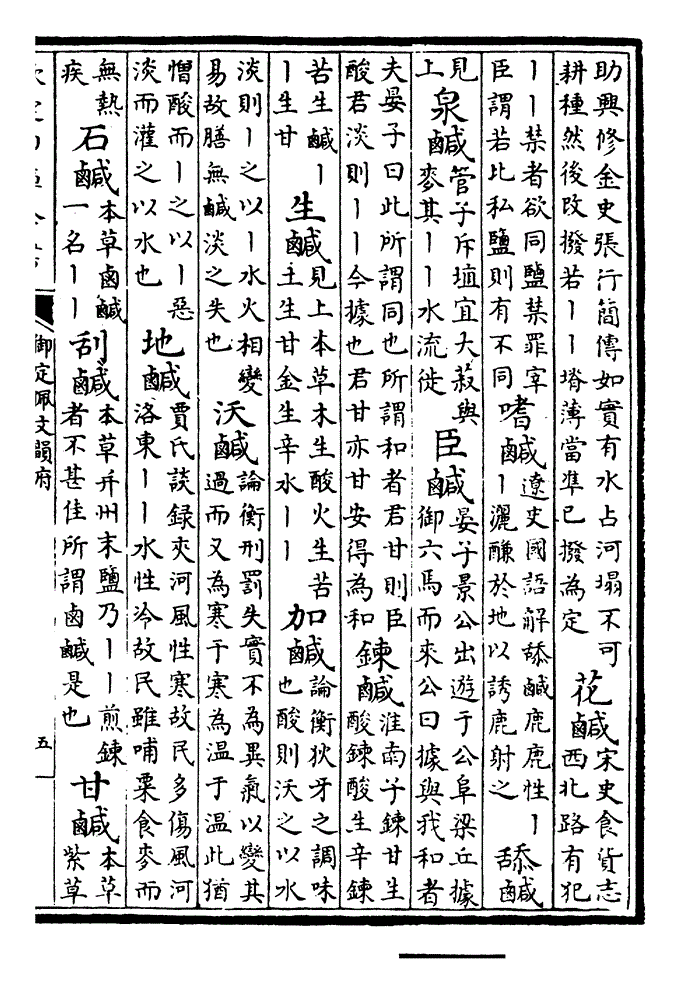 助興修金史張行簡傳如實有水占河塌不可
耕種然後改撥若丨丨堦薄當凖已撥為定
花鹹
宋史食貨志
西北路有犯
丨丨禁者欲同鹽禁罪宰
臣謂若比私鹽則有不同
嗜鹹
遼史國語解舔鹹鹿鹿性丨
丨灑醶於地以誘鹿射之
舔鹹
見
上
泉鹹
管子斥埴宜大菽與
麥其丨丨水流徙
臣鹹
晏子景公出遊于公阜梁丘據
御六馬而來公曰據與我和者
夫晏子曰此所謂同也所謂和者君甘則臣
酸君淡則丨丨今據也君甘亦甘安得為和
鍊鹹
淮南子鍊甘生
酸鍊酸生辛鍊
苦生鹹丨
丨生甘
生鹹
見上本草木生酸火生苦
土生甘金生辛水丨丨
加鹹
論衡狄牙之調味
也酸則沃之以水
淡則丨之以丨水火相變
易故膳無鹹淡之失也
沃鹹
論衡刑罰失實不為異氣以變其
過而又為寒于寒為温于温此猶
憎酸而丨之以丨惡
淡而灌之以水也
地鹹
賈氏談録夾河風性寒故民多傷風河
洛東丨丨水性冷故民雖哺粟食麥而
無熱
疾
石鹹
本草鹵鹹
一名丨丨
刮鹹
本草并州末鹽乃丨丨煎鍊
者不甚佳所謂鹵鹹是也
甘鹹
本草
紫草
御定佩文韻府
五